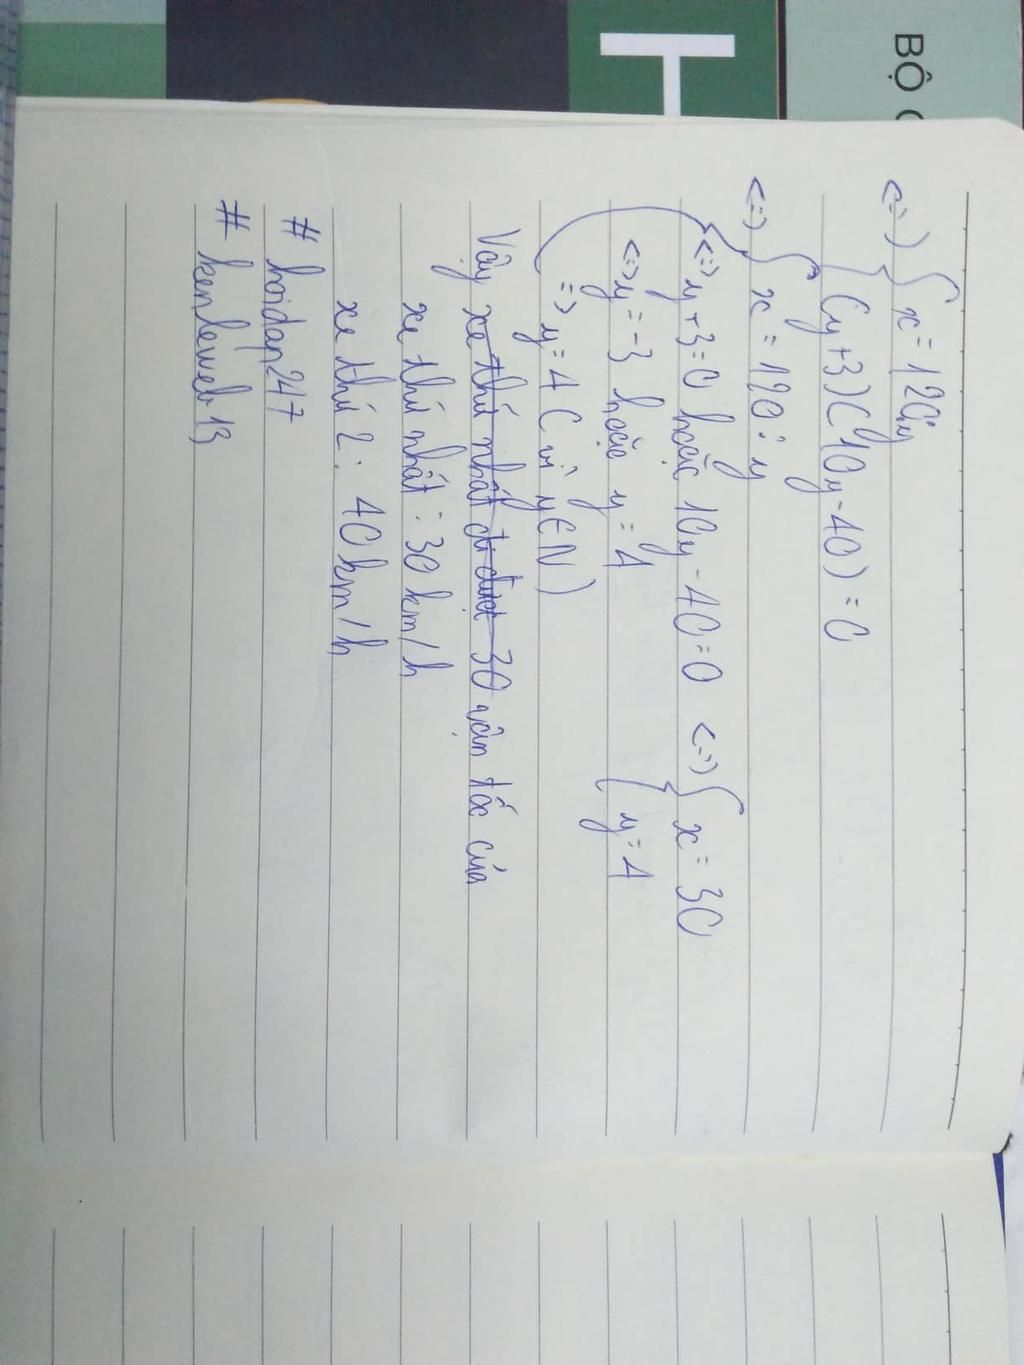 BỘ
H
<=> { x = 120 : y
(y+3)(10y-40) = 0
<=> { x = 120 : y
<=> y+3=0 hoặc 10y-40=0 <=> { x = 30
<=> y = -3 hoặc y = 4 { y = 4
=> y = 4 ( vì y ∈ N )
Vậy xe thứ nhất đi được 30 vận tốc của
xe thứ nhất : 30 km/h
xe thứ 2 : 40 km/h
# hoidap247
# kenleweb13